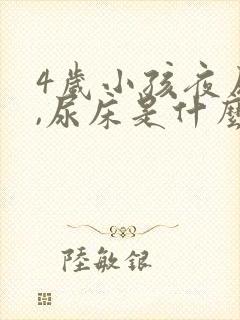 4歲小孩夜尿
,尿床是什麼
陸敏銀